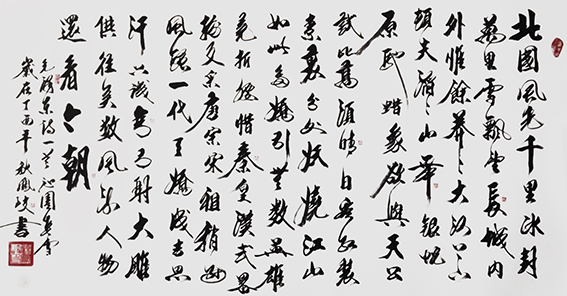 北國風光千里冰封
萬里雪飄望長城内
外惟餘莽々大河上下
頓失滔々山舞銀蛇
原馳蜡象欲與天公
試比高須晴日看紅裝
素裹分外妖嬈江山
如此多嬌引無數英雄
竞折腰惜秦皇漢武略
輸文采唐宗宋祖稍遜
風騷一代天驕成吉思
汗只識弯弓射大雕
俱往矣數風流人物
還看今朝
毛澤東詩一首沁園春雪
歲在丁酉年秋鳳書